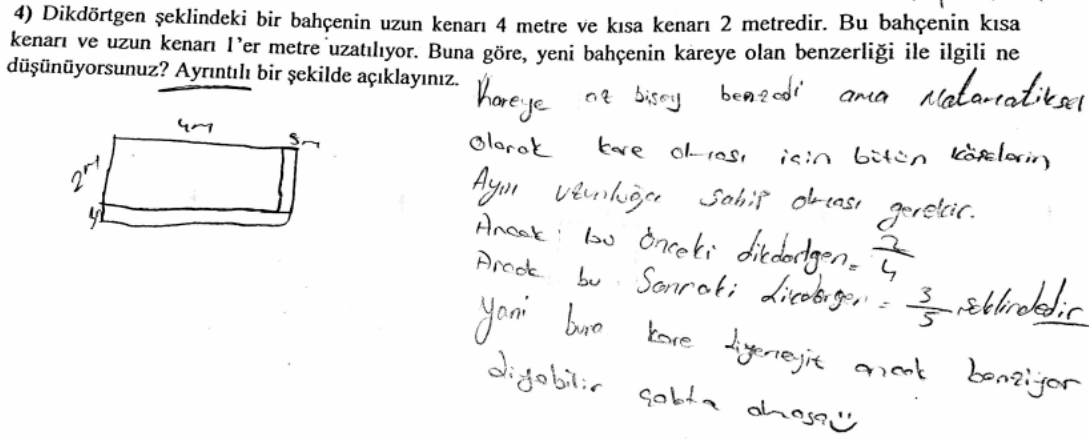 4) Dikdörtgen şeklindeki bir bahçenin uzun kenarı 4 metre ve kısa kenarı 2 metredir. Bu bahçenin kısa
kenarı ve uzun kenarı 1'er metre uzatılıyor. Buna göre, yeni bahçenin kareye olan benzerliği ile ilgili ne
düşünüyorsunuz? Ayrıntılı bir şekilde açıklayınız.
Kareye az bişey benzedi ama Matematiksel
olarak kare olması için bütün köşelerin
Aynı uzunluğa sahip olması gerekir.
Ancak bu önceki dikdörtgen = 2/4
Ancak bu Sonraki dikdörtgen = 3/5 şeklindedir
Yani buna kare diyemeyiz ancak benziyor
diyebilir çokta olmasa
4m
2m